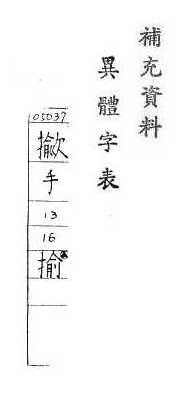 補充資料
異體字表
05037
手
13
16
揄